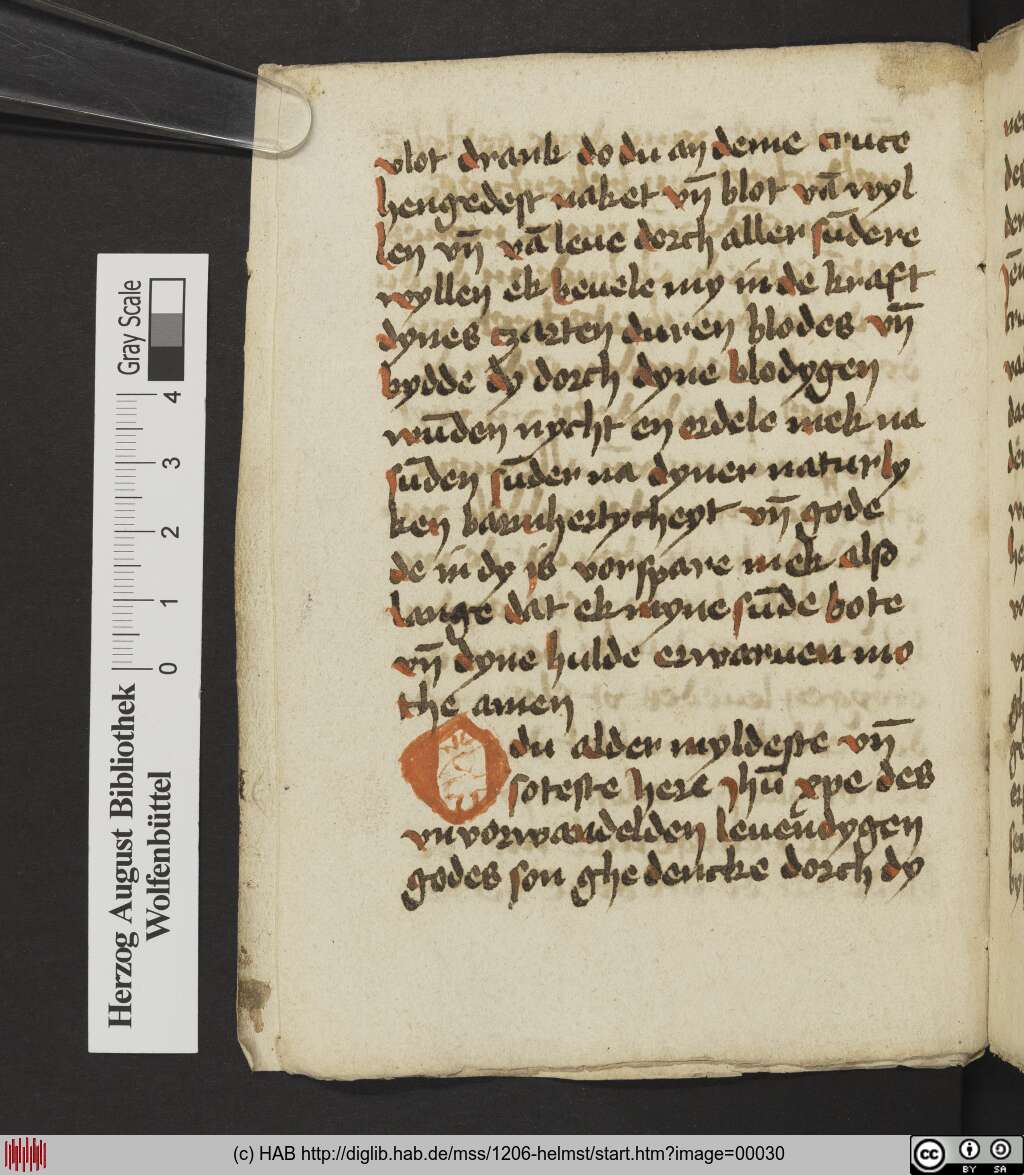 vlot drank do du an̄ deme cruce
hengedest naket vn̄ blot vā wyl
len vn̄ vā leue dorch aller sūdere
wyllen ek beuele my in de kraft
dynes czarten duren blodes vn̄
bydde dy dorch dyne blodygen
wūden nycht en ordele mek na
sūden sūder na dyner naturly
ken barmhertycheyt vn̄ gode
de in dy is vorspare mek also
lange dat ek myne sūde bote
vn̄ dyne hulde erwaruen mo
the amen
O du alder myldeste vn̄
soteste here Jhū xpe des
vnvorwandelden leuēdygen
godes son ghedencke dorch dy
Gray Scale
4
3
2
1
0
Herzog August Bibliothek
Wolfenbüttel
(c) HAB http://diglib.hab.de/mss/1206-helmst/start.htm?image=00030
cc
BY SA